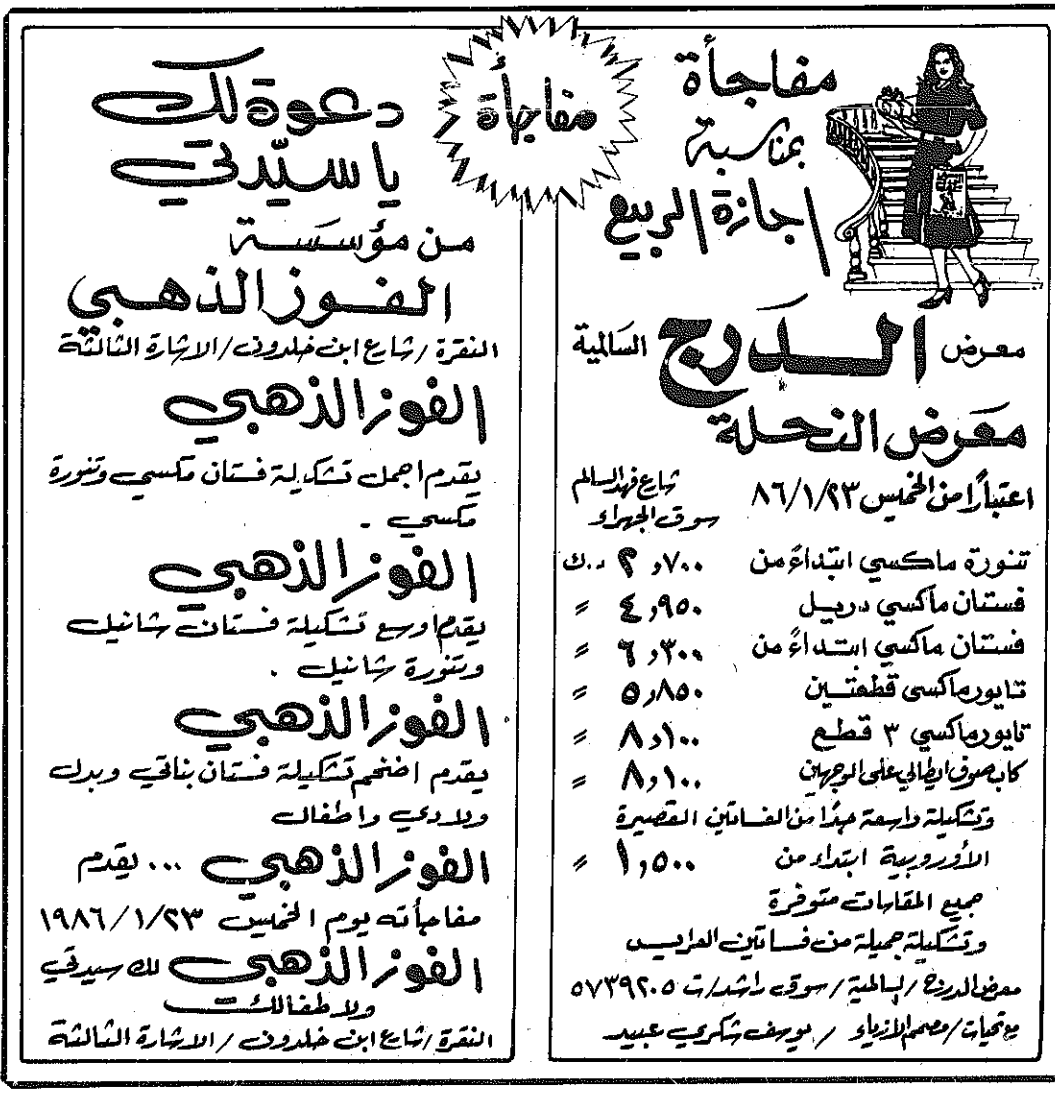 مفاجأة
مفاجأة
بمناسبة
اجازة الربيع
معرض الدرج السالمية
معرض النحلة
اعتبارًا من الخميس ٨٦/١/٢٣ شارع فهد السالم
سوق الجهراء
تنورة ماكسي ابتداءً من ٢,٧٠٠ د.ك
فستان ماكسي دريل ٤,٩٥٠ =
فستان ماكسي ابتداءً من ٦,٣٠٠ =
تايور ماكسي قطعتين ٥,٨٥٠ =
تايور ماكسي ٣ قطع ٨,١٠٠ =
كاب صوف ايطالي على الوجهين ٨,١٠٠ =
وتشكيلة واسعة جدًا من الفساتين القصيرة
الأوروبية ابتداء من ١,٥٠٠ =
جميع المقاسات متوفرة
وتشكيلة جميلة من فساتين العرايس
معرض الدرج / السالمية / سوق راشد / ت ٥٧٣٩٢٠٥
مع تحيات / مصمم الأزياء / يوسف شكري عبيد
دعوة لك
يا سيّدتي
من مؤسسة
الفوز الذهبي
النقرة / شارع ابن خلدون / الاشارة الثالثة
الفوز الذهبي
يقدم اجمل تشكيلة فستان مكسي وتنورة
مكسي .
الفوز الذهبي
يقدم اوسع تشكيلة فستان شانيل
وتنورة شانيل .
الفوز الذهبي
يقدم اضخم تشكيلة فستان بناتي وبدل
ولادي واطفال
الفوز الذهبي ... يقدم
مفاجأته يوم الخميس ١٩٨٦/١/٢٣
الفوز الذهبي لك سيدتي
ولاطفالك
النقرة / شارع ابن خلدون / الاشارة الثالثة